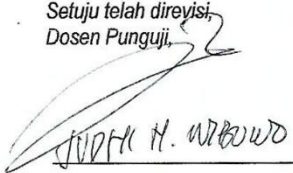 Setuju telah direvisi,
Dosen Punguji,
JUDHI H. WIBOWO